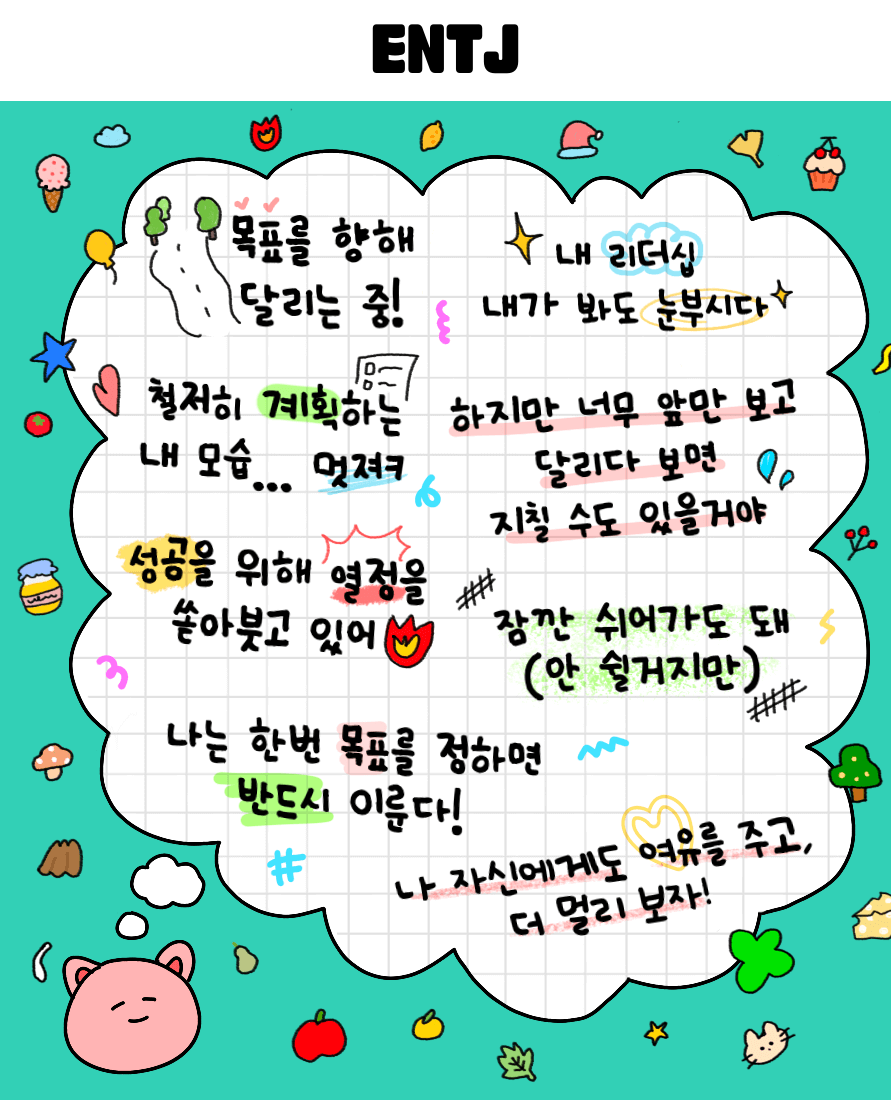 ENTJ
목표를 향해
달리는 중!
내 리더십
내가 봐도 눈부시다
철저히 계획하는
내 모습... 멋져ㅋ
하지만 너무 앞만 보고
달리다 보면
지칠 수도 있을거야
성공을 위해 열정을
쏟아붓고 있어
잠깐 쉬어가도 돼
(안 쉴거지만)
나는 한번 목표를 정하면
반드시 이룬다!
나 자신에게도 여유를 주고,
더 멀리 보자!